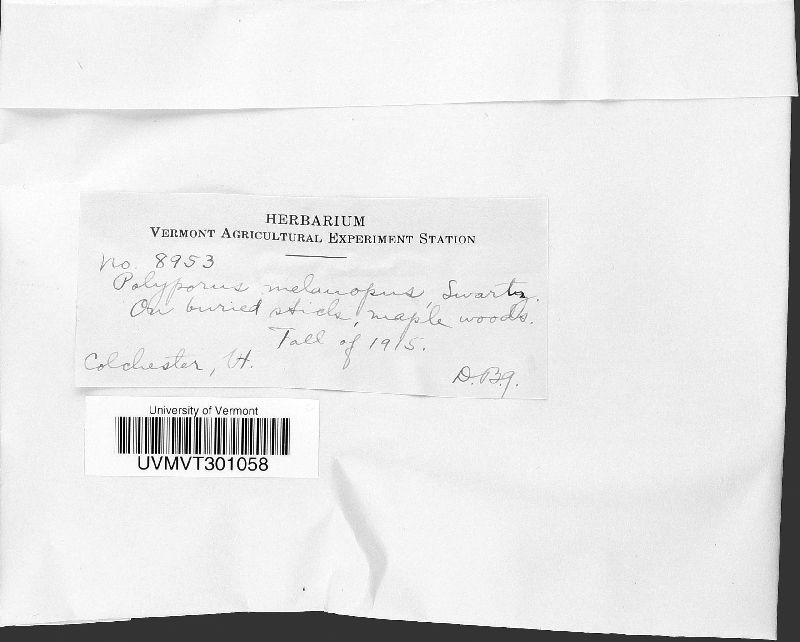 HERBARIUM
VERMONT AGRICULTURAL EXPERIMENT STATION
No. 8953
Polyporus melanopus, Swartz.
On buried sticks, maple woods.
Fall of 1915.
Colchester, Vt.
University of Vermont
UVMVT301058